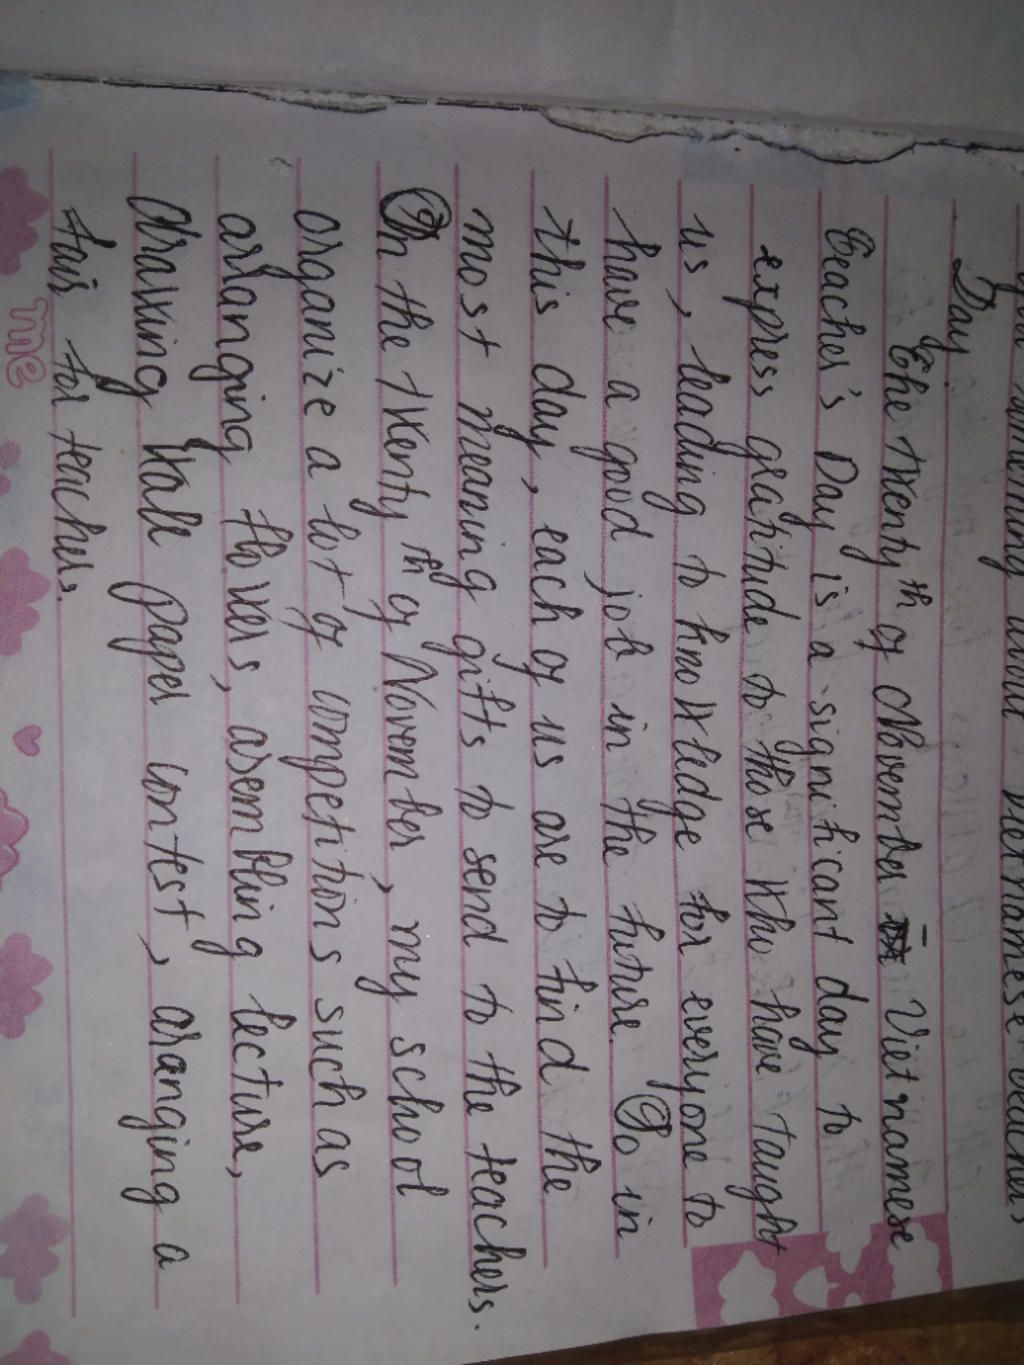 remembering about Vietnamese Teacher's
Day.
The twentyth of November - Vietnamese
Teacher's Day is a significant day to
express gratitude to those who have taught
us, leading to knowledge for everyone to
have a good job in the future. So in
this day, each of us are to find the
most meaning gifts to send to the teachers.
On the twentyth of November, my school
organize a lot of competitions such as
arlanging flowers, asembling lecture,
drawing wall paper contest, aranging a
fair for teachers.
me